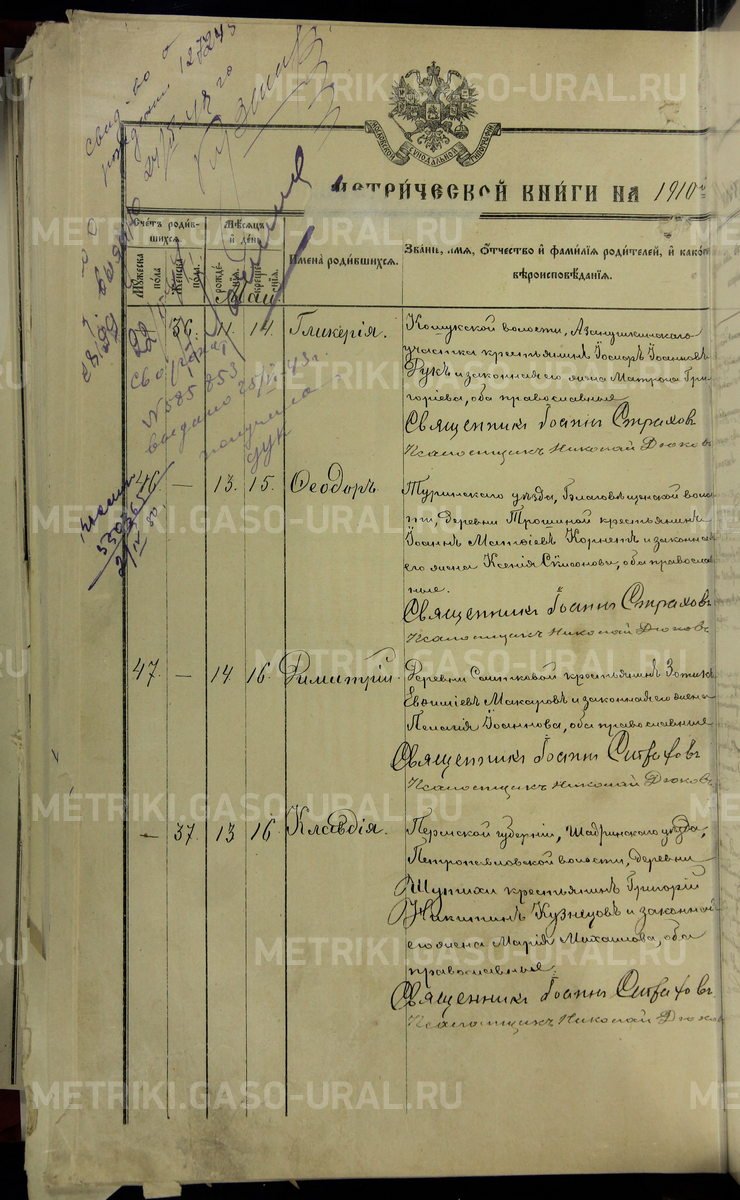 свид-во о
рождении 127245
24/
МЕТРИ́ЧЕСКОЙ КНИ́ГИ НА 1910
Счетъ роди́вшихся.
Мѣсяцъ и́ день
Мужеска пола
Женска пол.
рождения.
крещения.
Имена́ роди́вшихся.
Зва́ніе, и́мя, о́тчество и́ фами́лія роди́телей, и́ како́го
вѣроисповѣ́данія.
Май
36. 11. 14. Гликерія.
Кошукской волости, Азанушкинскаго
участка крестьянинъ Іосифъ Іоанновъ
Рукъ и законная его жена Матрона Гри-
горіева, оба православные
Священникъ Іоаннъ Страховъ
Псаломщикъ Николай Дюковъ
№ 585853
выдано
получила
46. — 13. 15. Ѳеодоръ
Туринскаго уѣзда, Благовѣщенской воло-
сти, деревни Трошиной крестьянинъ
Іоаннъ Матѳіевъ Корнетъ и законная
его жена Ксенія Сѵмеонова, оба православ-
ные.
Священникъ Іоаннъ Страховъ
Псаломщикъ Николай Дюковъ
47. — 14 16. Димитрій.
Деревни Саитковой крестьянинъ Зотикъ
Евѳиміевъ Макаровъ и законная его жена
Пелагія Іоаннова, оба православные
Священникъ Іоаннъ Страховъ
Псаломщикъ Николай Дюковъ
— 37. 13 16. Клавдія.
Пермской губерніи, Шадринскаго уѣзда,
Петропавловской волости, деревни
Шутихи крестьянинъ Григорій
Никитинъ Кузнецовъ и законная
его жена Марія Михаилова, оба
православные.
Священникъ Іоаннъ Страховъ
Псаломщикъ Николай Дюковъ
METRIKI.GASO-URAL.RU